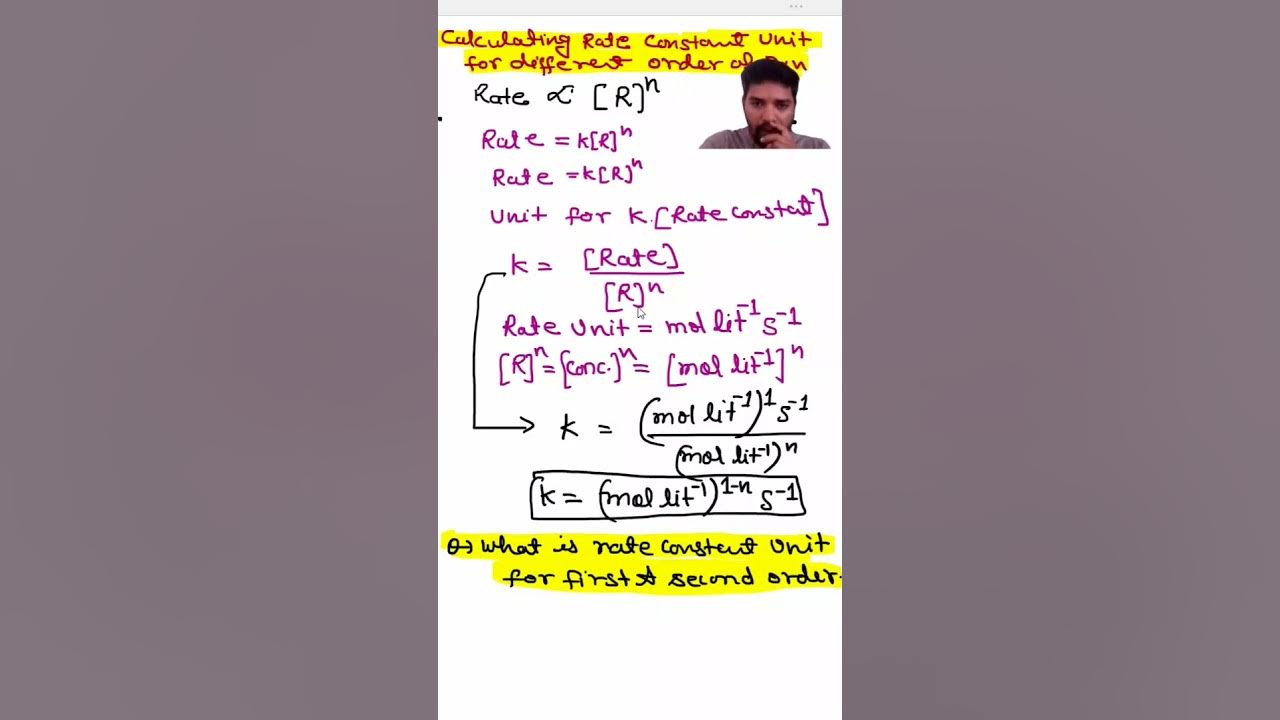 Calculating Rate Constant Unit
for different order of Rxn
Rate ∝ [R]ⁿ
Rate = K[R]ⁿ
Rate = K[R]ⁿ
Unit for K. [Rate constat]
K = [Rate] / [R]ⁿ
Rate Unit = mol lit⁻¹ S⁻¹
[R]ⁿ = [Conc.]ⁿ = [mol lit⁻¹]ⁿ
K = (mol lit⁻¹)¹ S⁻¹ / (mol lit⁻¹)ⁿ
K = (mol lit⁻¹)¹⁻ⁿ S⁻¹
Q→ What is rate constant Unit
for first & second order.